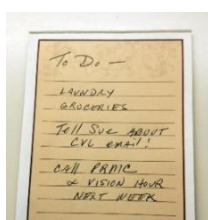 To Do —
LAUNDRY
GROCERIES
Tell Sue ABOUT
CVL email!
CALL
& VISION HOUR
NEXT WEEK